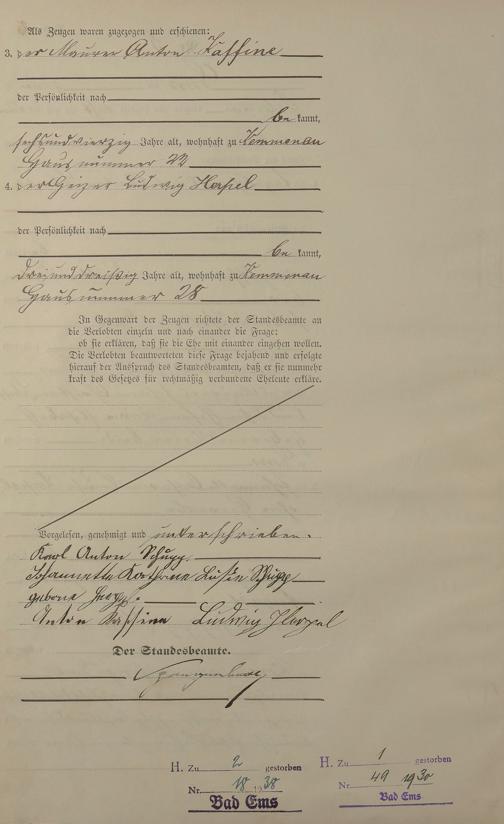 Als Zeugen waren zugezogen und erschienen:
3. der Maurer Anton Kaffine
der Persönlichkeit nach
be kannt,
sechsundvierzig Jahre alt, wohnhaft zu Kemmenau
Hausnummer 22
4. der Heizer Ludwig Herpel
der Persönlichkeit nach
be kannt,
dreiunddreißig Jahre alt, wohnhaft zu Kemmenau
Hausnummer 28
In Gegenwart der Zeugen richtete der Standesbeamte an
die Verlobten einzeln und nach einander die Frage:
ob sie erklären, daß sie die Ehe mit einander eingehen wollen.
Die Verlobten beantworteten diese Frage bejahend und erfolgte
hierauf der Ausspruch des Standesbeamten, daß er sie nunmehr
kraft des Gesetzes für rechtmäßig verbundene Eheleute erkläre.
Vorgelesen, genehmigt und unterschrieben.
Karl Anton Schupp
Johannette Kathrine Luise Schupp
geborne
Anton Kaffine Ludwig Herpel
Der Standesbeamte.
H. Zu 2 gestorben
Nr. 18 1938
Bad Ems
H. Zu 1 gestorben
Nr. 49 1930
Bad Ems